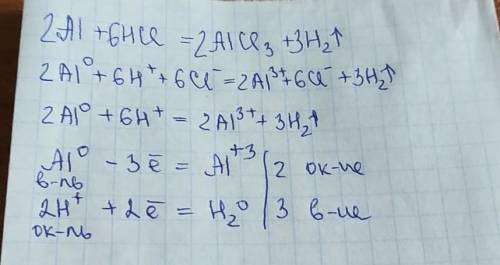 2Al + 6HCl = 2AlCl₃ + 3H₂↑
2Al⁰ + 6H⁺ + 6Cl⁻ = 2Al³⁺ + 6Cl⁻ + 3H₂↑
2Al⁰ + 6H⁺ = 2Al³⁺ + 3H₂↑
Al⁰ - 3ē = Al⁺³ | 2 ок-ие
в-ль
2H⁺ + 2ē = H₂⁰ | 3 в-ие
ок-ль